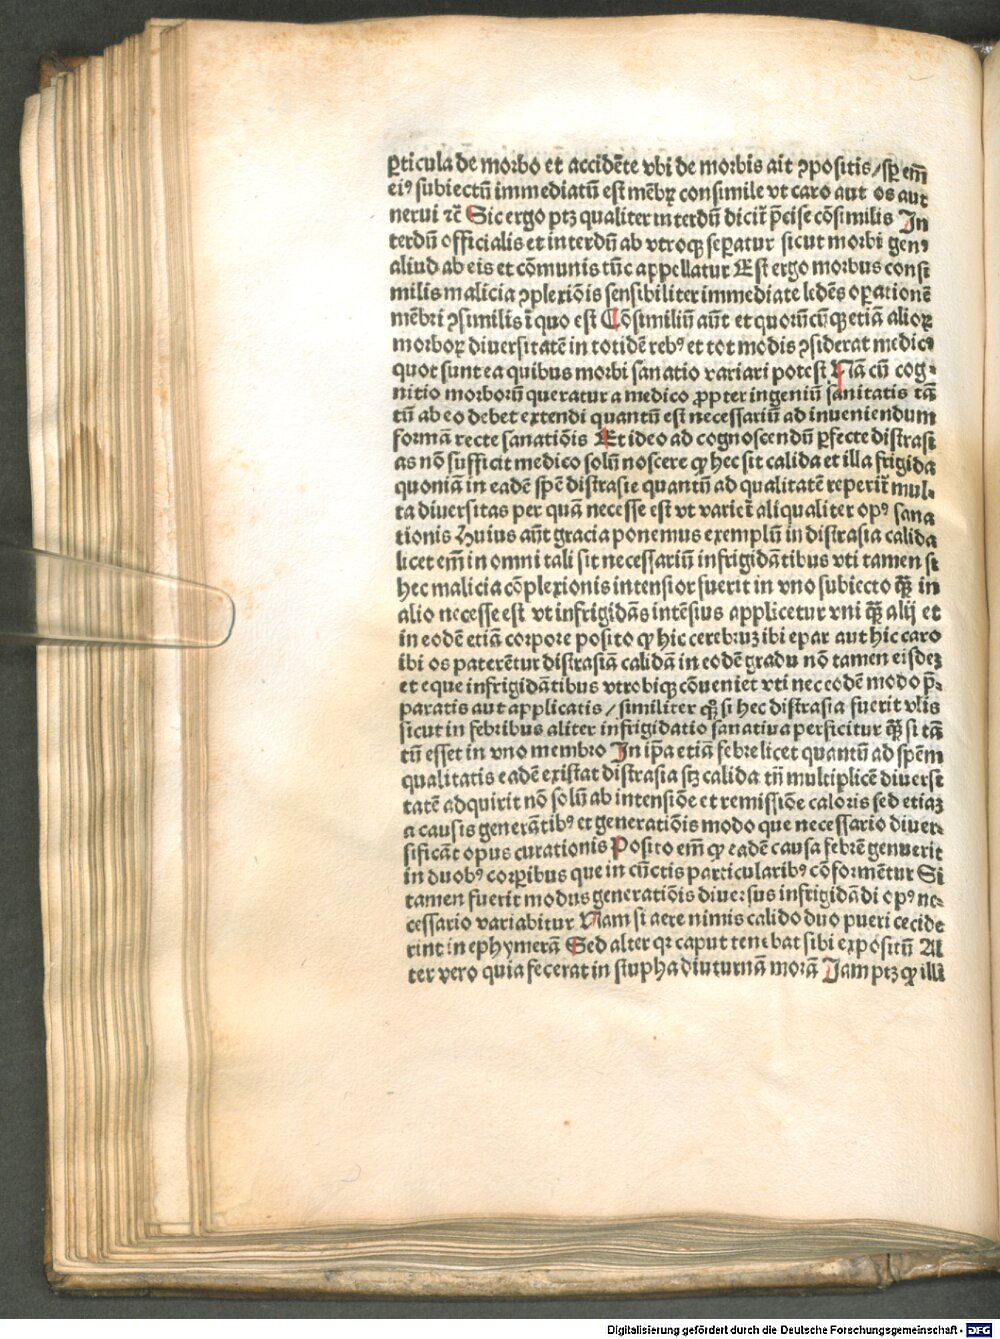 ꝑticula de morbo et accidēte vbi de morbis ait ꝯpositis/sꝑ em̄
eiꝰ subiectū immediatū est mēbꝝ consimile vt caro aut os aut
nerui ⁊c̄ Sic ergo ptꝫ qualiter interdū dicit᷑ p̄cise cōsimilis In
terdū officialis et interdū ab vtroqꝫ seꝑatur sicut morbi genꝰ
aliud ab eis et cōmunis tūc appellatur Est ergo morbus consi
milis malicia ꝯplexiōis sensibiliter immediate ledēs oꝑationē
mēbri ꝯsimilis ī quo est Cōsimiliū aūt et quorūcūqꝫ etiā alioꝝ
morboꝝ diuersitatē in totidē rebꝰ et tot modis ꝯsiderat medicꝰ
quot sunt ea quibus morbi sanatio variari potest Nā cū cog-
nitio morborū queratur a medico ꝓpter ingeniū sanitatis tā
tū ab eo debet extendi quantū est necessariū ad inueniendum
formā recte sanatiōis Et ideo ad cognoscendū ꝑfecte distrasi
as nō sufficit medico solū noscere ꝙ hec sit calida et illa frigida
quoniā in eadē spē distrasie quantū ad qualitatē reperit᷑ mul-
ta diuersitas per quā necesse est vt variet᷑ aliqualiter opꝰ sana
tionis Huius aūt gracia ponemus exemplū in distrasia calida
licet em̄ in omni tali sit necessariū infrigidātibus vti tamen si
hec malicia cōplexionis intensior fuerit in vno subiecto qꝫ̄ in
alio necesse est vt infrigidās intēsius applicetur vni qꝫ̄ alij et
in eodē etiā corpore posito ꝙ hic cerebruꝫ ibi epar aut hic caro
ibi os paterētur distrasiā calidā in eodē gradu nō tamen eisdeꝫ
et eque infrigidātibus vtrobiqꝫ cōueniet vti nec eodē modo p̄-
paratis aut applicatis/similiter qꝫ̄ si hec distrasia fuerit vl̄is
sicut in febribus aliter infrigidatio sanatiua perficitur qꝫ̄ si tā
tū esset in vno membro In ip̄a etiā febre licet quantū ad spēm
qualitatis eadē existat distrasia scꝫ calida tn̄ multiplicē diuersi
tatē adquirit nō solū ab intensiōe et remissiōe caloris sed etiaꝫ
a causis generātibꝰ et generatiōis modo que necessario diuer-
sificāt opus curationis Posito em̄ ꝙ eadē causa febrē genuerit
in duobꝰ corꝑibus que in cūctis particularibꝰ cōformētur Si
tamen fuerit modus generatiōis diuersus infrigidādi opꝰ ne-
cessario variabitur Nam si aere nimis calido duo pueri cecide
rint in ephymerā Sed alter qꝛ caput tenebat sibi expositū Al
ter vero quia fecerat in stupha diuturnā morā Jam ptꝫ ꝙ illi
Digitalisierung gefördert durch die Deutsche Forschungsgemeinschaft - DFG